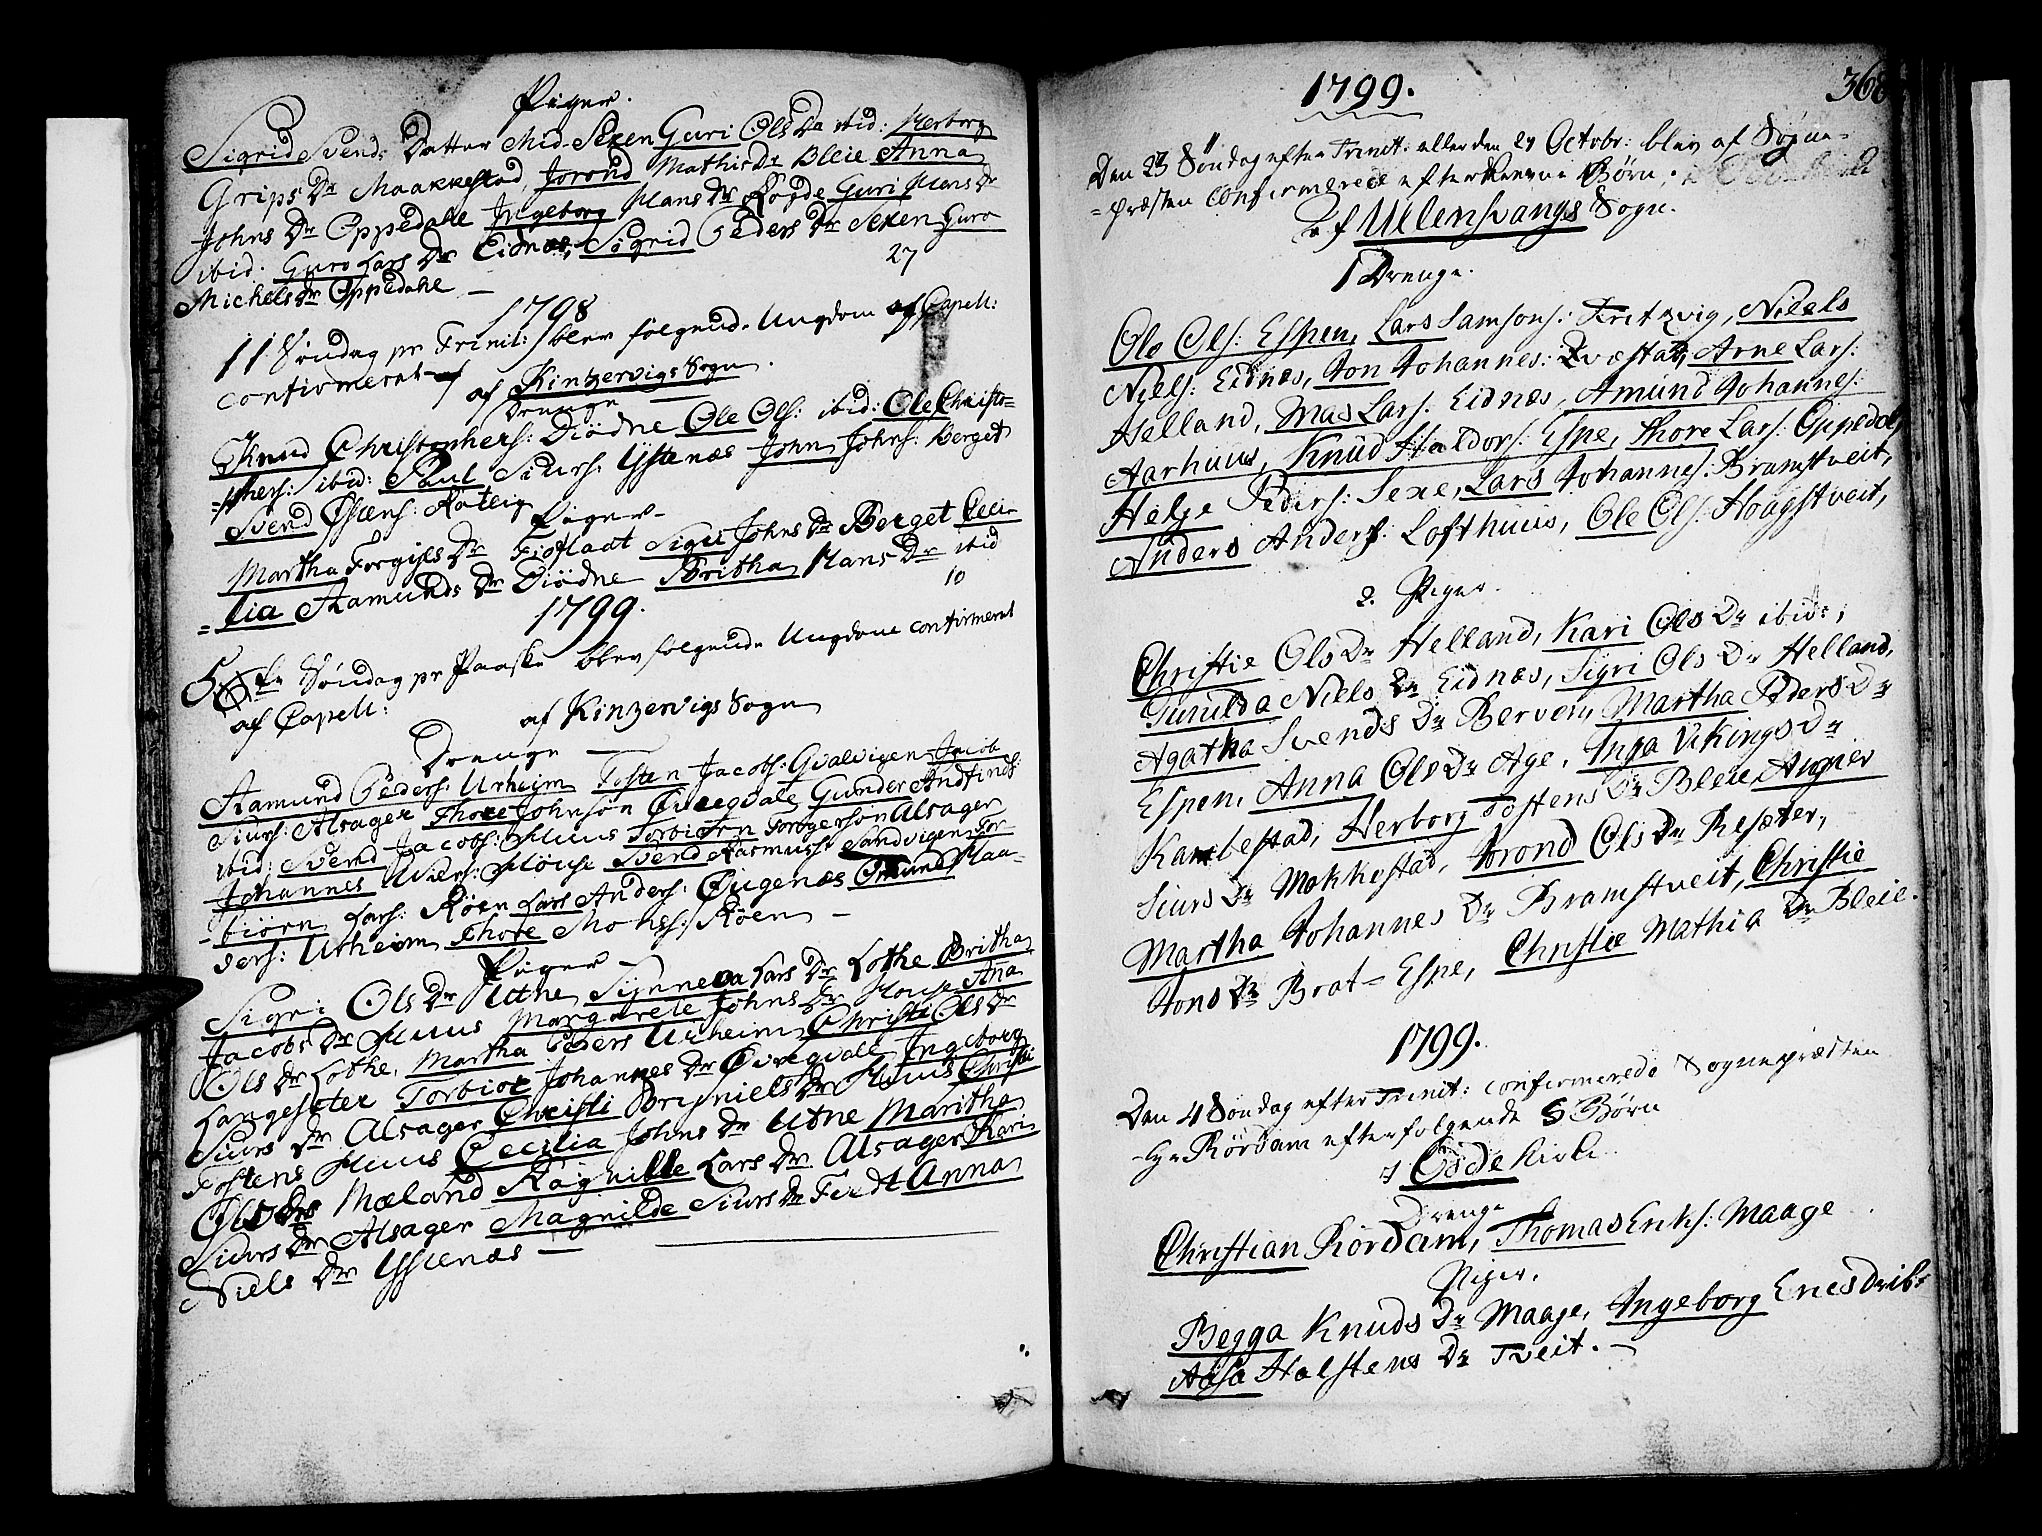 Piger.
Sigrid Svends Datter Mid-Sexen Guri Ols Da ibid: Herborg
Grips Dr Maakkestad, Jorond Mathis Dr Bleie Anna
Johns Dr Oppedahl Ingeborg Hans Dr Rogde Guri Hans Dr
ibid. Guro Lars Dr Eidnæs, Sigrid Peders Dr Sexen Guro
Michels Dr Oppedahl — 27
1798
11 Søndag pr Trinit: blev følgende Ungdom af Capell:
confirmeret
af Kinzervigs Sogn.
Drenge
Knud Christophers: Diödne Ole Ols: ibid: Ole Christo=
=phers: ibid: Paul Siurs: Ystenæs John Johns: Berget
Svend Ostens: Røteig
Piger
Martha Torgils Dr Fiofladt Sigri Johns Dr Berget Ceci-
=lia Aamunds Dr Diödne Britha Hans Dr ibid
10
1799.
5te Søndag pr Paaske blev følgende Ungdom confirmeret
af Capell:
af Kinzervigs Sogn
Drenge
Aamund Peders: Urheim Tosten Jacobs: Qvalvigen Jacob
Siurs: Alsager Thore Johnson Qveqvale Gunder Andfinds:
ibid; Svend Jacobs: Huus Torbiörn Torgerson Alsager
Johannes Hovse Svend Rasmus: Sandvigen Tor-
-biörn Lars: Röen Lars Anders: Öugenæs Omund Haa-
vers: Urheim Thore Mons: Röen —
Piger
Sigri Ols Dr Utne Sinneva Lars Dr Lothe Britha
Jacobs Dr Huus Margarete Johns Dr Hovse Aña
Ols Dr Lothe, Martha Peders Urheim Christi Ols Dr
Langesæter Torbior Johannes Dr Qveqvale Ingeborg
Siurs Dr Alsager Christi Bryniels Dr Huus Christi
Tostens Huus Cecilia Johns Dr Utne Maritha
Ols Dr Mæland Ragnille Lars Dr Alsager Kari
Siurs Dr Alsager Magnilde Siurs Dr Anna
Niels Dr Ystenæs —
1799.
368
Den 23 Søndag efter Trinit: eller den 27 Octobr: blev af Sogne-
=præsten confirmerede efterskrevne Børn,
af Ullensvangs Sogn.
1 Drenge.
Ole Ols: Espen, Lars Samsons: Tritzvig, Niels
Niels: Eidnæs, Jon Johannes: Qvæstad, Arne Lars:
Helland, Mas Lars: Eidnæs, Amund Johannes:
Aarhuus, Knud Haldors: Espe, Thore Lars: Oppedal,
Helge Peders: Sexe, Lars Johannes: Bramstveit,
Anders Anders: Lofthuus, Ole Ols: Hougstveit,
2. Piger.
Christie Ols Dr Helland, Kari Ols Dr ibid:,
Gunilda Niels Dr Eidnæs, Sigri Ols Dr Helland,
Agatha Svends Dr Berven, Martha Peders Dr
Espen, Anna Ols Dr Age, Inga Vikings Dr
Kambestad, Herborg Tostens Dr Bleie Angier
Siurs Dr Mokkestad, Jorond Ols Dr Resæter,
Martha Johannes Dr Bramstveit, Christie
Jons Dr Brat=Espe, Christie Mathia Dr Bleie.
1799.
Den 4 Søndag efter Trinit: confirmerede Sognepræsten
Hr Rördam efterfølgende 5 Børn
i Odde Kirke
Drenge
Christian Rördam, Thomas Eriks: Maage
Piger.
Begga Knuds Dr Maage, Ingeborg Erics Dr ib:
Aasa Halstens Dr Tveit. —